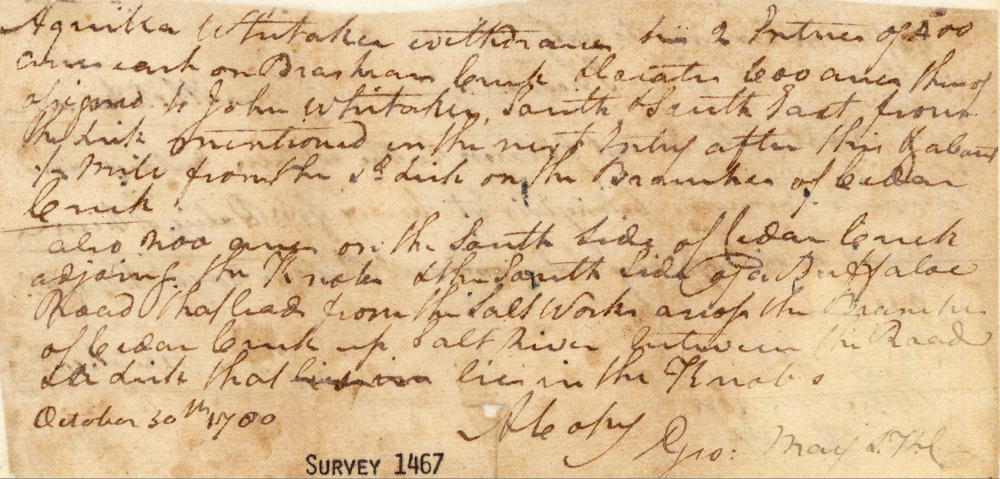 Aquilla Whitaker withdraws his 2 Entries of 400
acres each on Brashears Creek & locates 600 acres thereof
assigned to John Whitaker, South & South East from
the Lick mentioned in the next Entry after this & about
mile from the sd. Lick on the Branches of Cedar
Creek
also 200 acres on the South Side of Cedar Creek
adjoing the Knobs & the South Side of a Buffaloe
Road that leads from the Salt Works across the Branches
of Cedar Creek up Salt River between the Road
& a Lick that lies in the Knobs
October 30th 1780
A Copy
Geo: May
SURVEY 1467